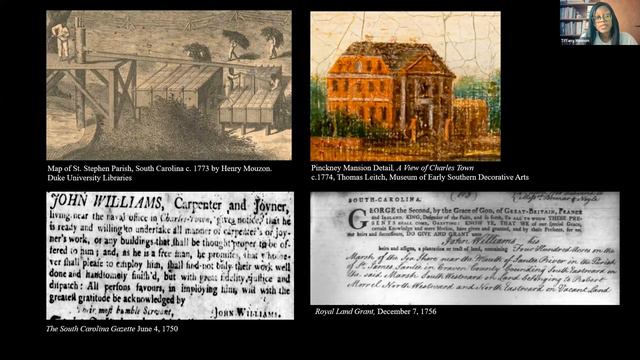 Tiffany Momon
Map of St. Stephen Parish, South Carolina c. 1773 by Henry Mouzon.
Duke University Libraries
Pinckney Mansion Detail, A View of Charles Town
c.1774, Thomas Leitch, Museum of Early Southern Decorative Arts
JOHN WILLIAMS, Carpenter and Joyner,
living near the naval office in Charles-Town, gives notice, that he
is ready and willing to undertake all manner of carpenter's or joy-
ner's work, or any buildings that shall be thought proper to be of-
fered to him; and, as he is a free man, he promises, that whone-
ver shall please to employ him, shall find not only their work well
done and handsomely finish'd, but with great fidelity, justice and
dispatch: All persons favours, in imploying him, will with the
greatest gratitude be acknowledged by
their most humble Servant, JOHN WILLIAMS.
SOUTH-CAROLINA.
GEORGE the Second, by the Grace of God, of GREAT-BRITAIN, FRANCE
and IRELAND, KING, Defender of the Faith, and so forth, To ALL TO WHOM THESE PRE-
SENTS SHALL COME, GREETING: KNOW YE, THAT WE of our Special Grace,
certain Knowledge and mere Motion, have given and granted, and by these Presents, for us,
our heirs and successors, DO GIVE AND GRANT unto
John Williams, his
heirs and assigns, a plantation or tract of land, containing Four Hundred Acres on the
Marsh of the Sea Shore near the Mouth of Santee River in the Parish
of St. James Santee in Craven County Bounding South Eastward on
the said Marsh South Westward on Land belonging to Robert
Morrel North Westward and North Eastward on Vacant Land
The South Carolina Gazette June 4, 1750
Royal Land Grant, December 7, 1756